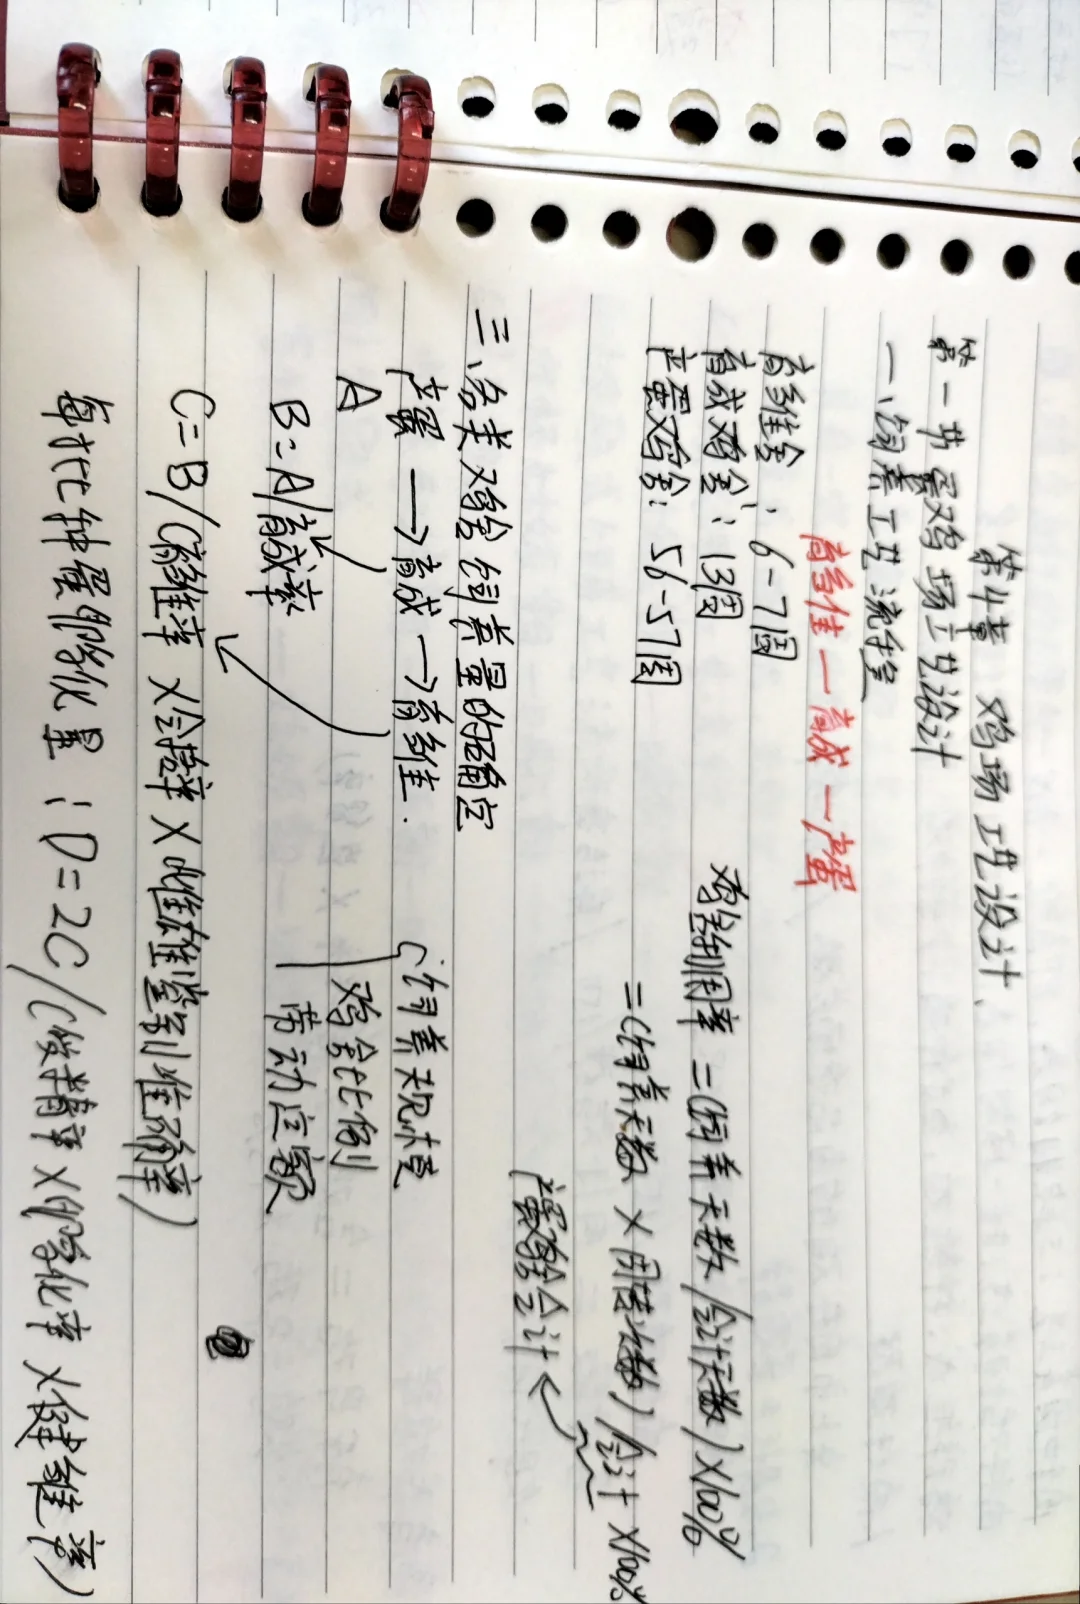 第4章 鸡场工艺设计、
第一节 蛋鸡场工艺设计
一、饲养工艺流程
育雏—育成—产蛋
育雏舍：6-7周
育成鸡舍：13周
产蛋鸡舍：56-57周
鸡舍利用率 =(饲养天数/会计天数)X100%
=(饲养天数 X 周转次数)/会计 X100%
产蛋鸡舍会计
三、各类鸡舍饲养量的确定
产蛋 → 育成 → 育雏.
A
B=A/育成率
C=B/(育雏率 X合格率X雌雄鉴别准确率)
饲养规模
鸡舍比例
劳动定额
每批种蛋孵化量：D=2C/(受精率X孵化率X健雏率)